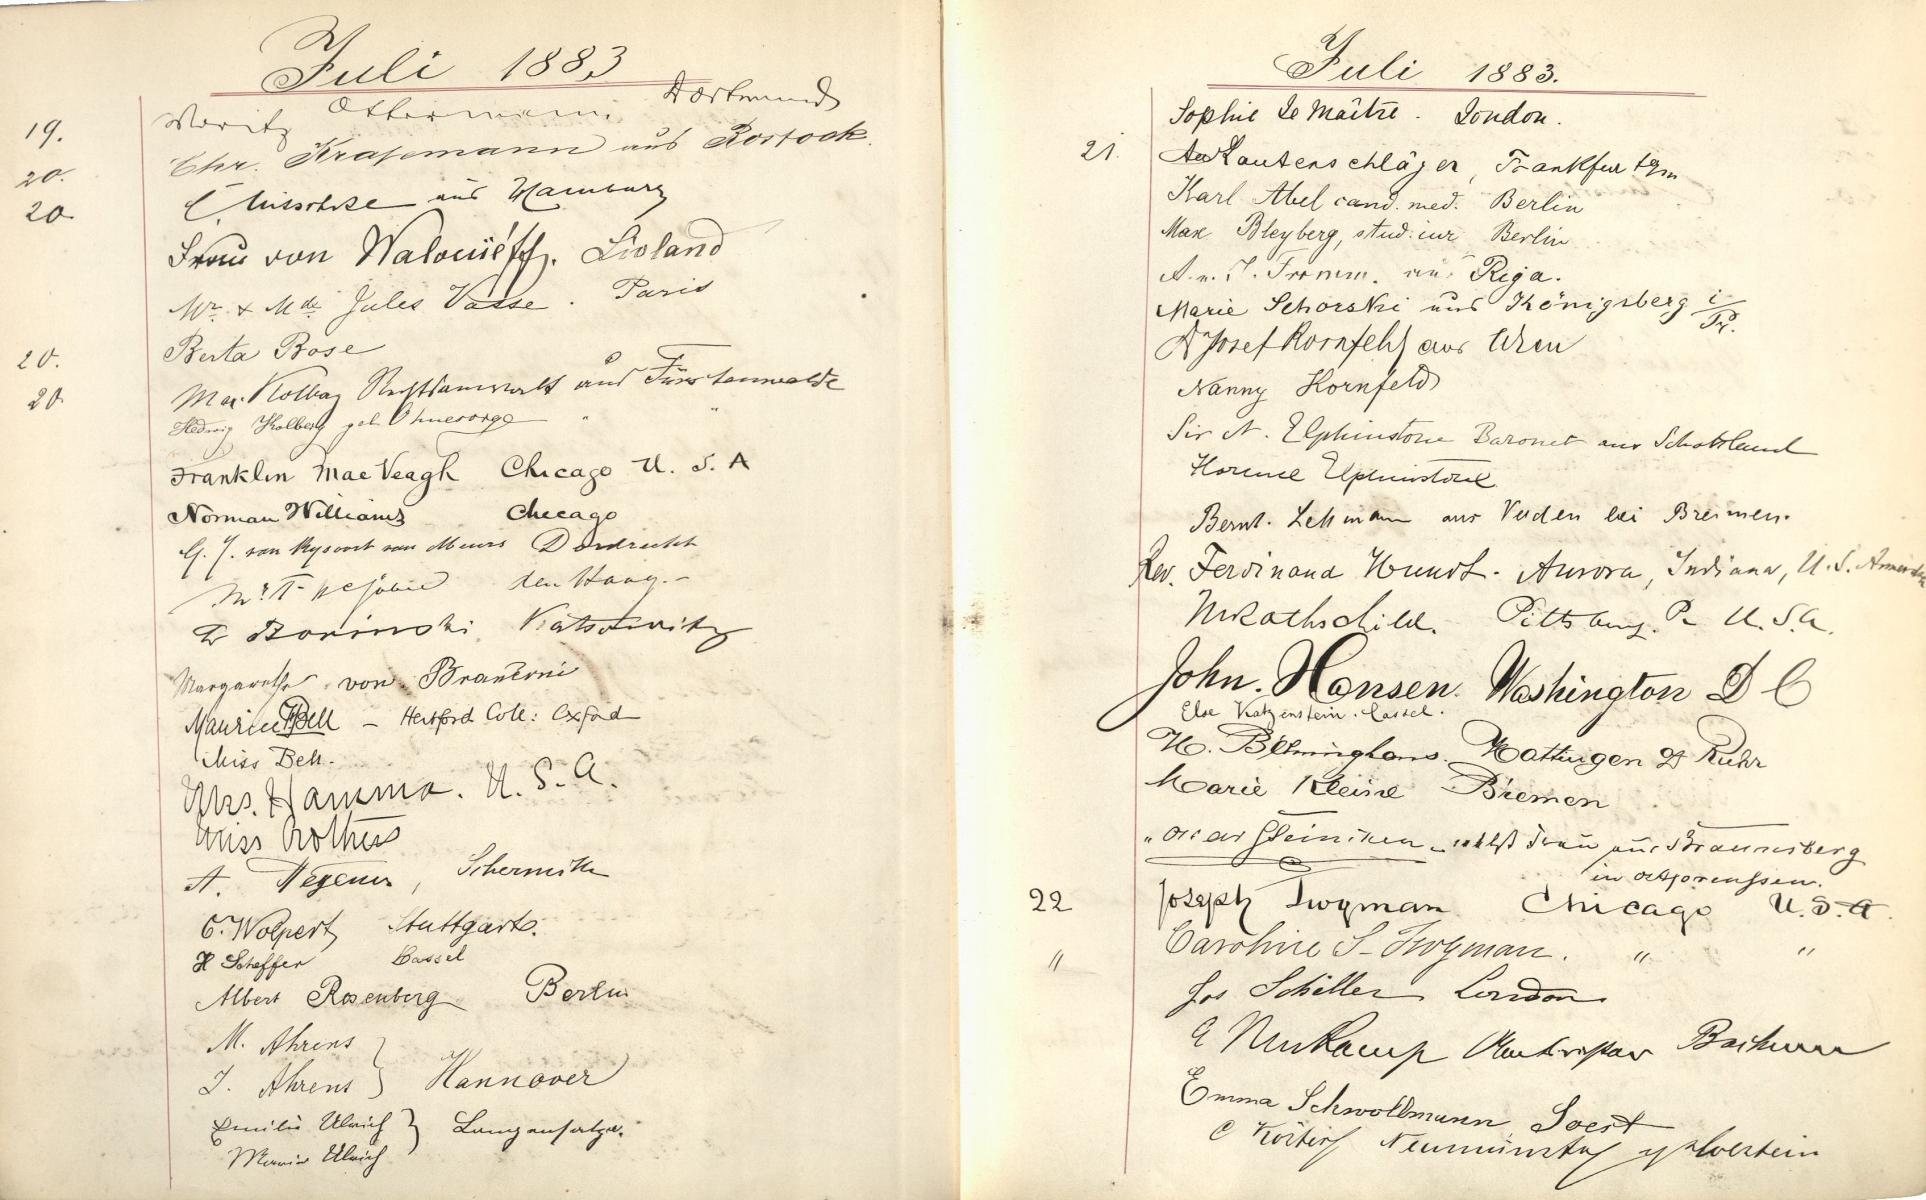 Juli 1883
Moritz Ostermann. Dortmund
19. Chr. Krasemann aus Rostock.
20. aus Hamburg
20 Frau von Walouieff. Livland
Mr & Mde Jules Vasse. Paris
20. Berta Bose
20. Max Kolberg Rechtsanwalt aus Fürstenwalde
Hedwig Kolberg geb. Ohnesorge " "
Franklin MacVeagh Chicago U. S. A
Norman Williams Chicago
G. J. van Rysoort van Meurs Dordrecht
den Haag.-
Dr Borinski Kattowitz
Margarethe von
Maurice Bell - Hertford Coll: Oxford
Miss Bell.
Mrs. Hamma. U. S. A.
Miss
A. Wegener,
C. Wolpert Stuttgart.
H Scheffer Cassel
Albert Rosenberg Berlin
M. Ahrens
J. Ahrens } Hannover
Emilie Ulrich } Langensalza.
Marie Ulrich
Juli 1883.
Sophie Le Maître. London.
21. Lautenschläger, Frankfurt a/m
Karl Abel cand. med. Berlin
Max Bleyberg, stud. jur. Berlin
A. u. J. Fromm. aus Riga.
Marie Schorski aus Königsberg i/Pr.
Dr Josef Kornfeld aus Wien
Nanny Kornfeld
Sir N. Elphinstone Baronet aus Schottland
Florence Elphinstone
Bernh. Lehmann aus Verden bei Bremen.
Rev. Ferdinand Hundt. Aurora, Indiana, U. S. America
Rothschild. Pittsburg. Pa U. S. A.
John. Hansen. Washington D C
Else Katzenstein. Cassel.
H. Hattingen Ruhr
Marie Kleine Bremen
Oscar nebst Frau aus Braunsberg
in Ostpreussen.
22 Joseph Twyman Chicago U. S. A.
" Caroline S. Twyman. " "
Jos Schiller London
Bochum
Emma Schwollmann Soest
C Neumünster Holstein